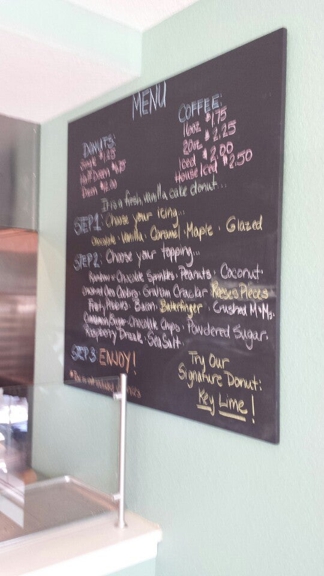 MENU
DONUTS:
Single $1.25
Half Dozen
Dozen
COFFEE:
16oz $1.75
20oz $2.25
Iced $2.00
House Iced $2.50
It is a fresh vanilla cake donut...
STEP 1: Choose your icing...
Chocolate · Vanilla · Caramel · Maple · Glazed
STEP 2: Choose your topping...
Rainbow or Chocolate Sprinkles · Peanuts · Coconut
Graham Cracker Reeses Pieces
Fruity Pebbles · Bacon · Butterfinger · Crushed M&Ms
Cinnamon Sugar · Chocolate Chips · Powdered Sugar
Raspberry Drizzle · Sea Salt
STEP 3 ENJOY!
Try Our
Signature Donut:
Key Lime!